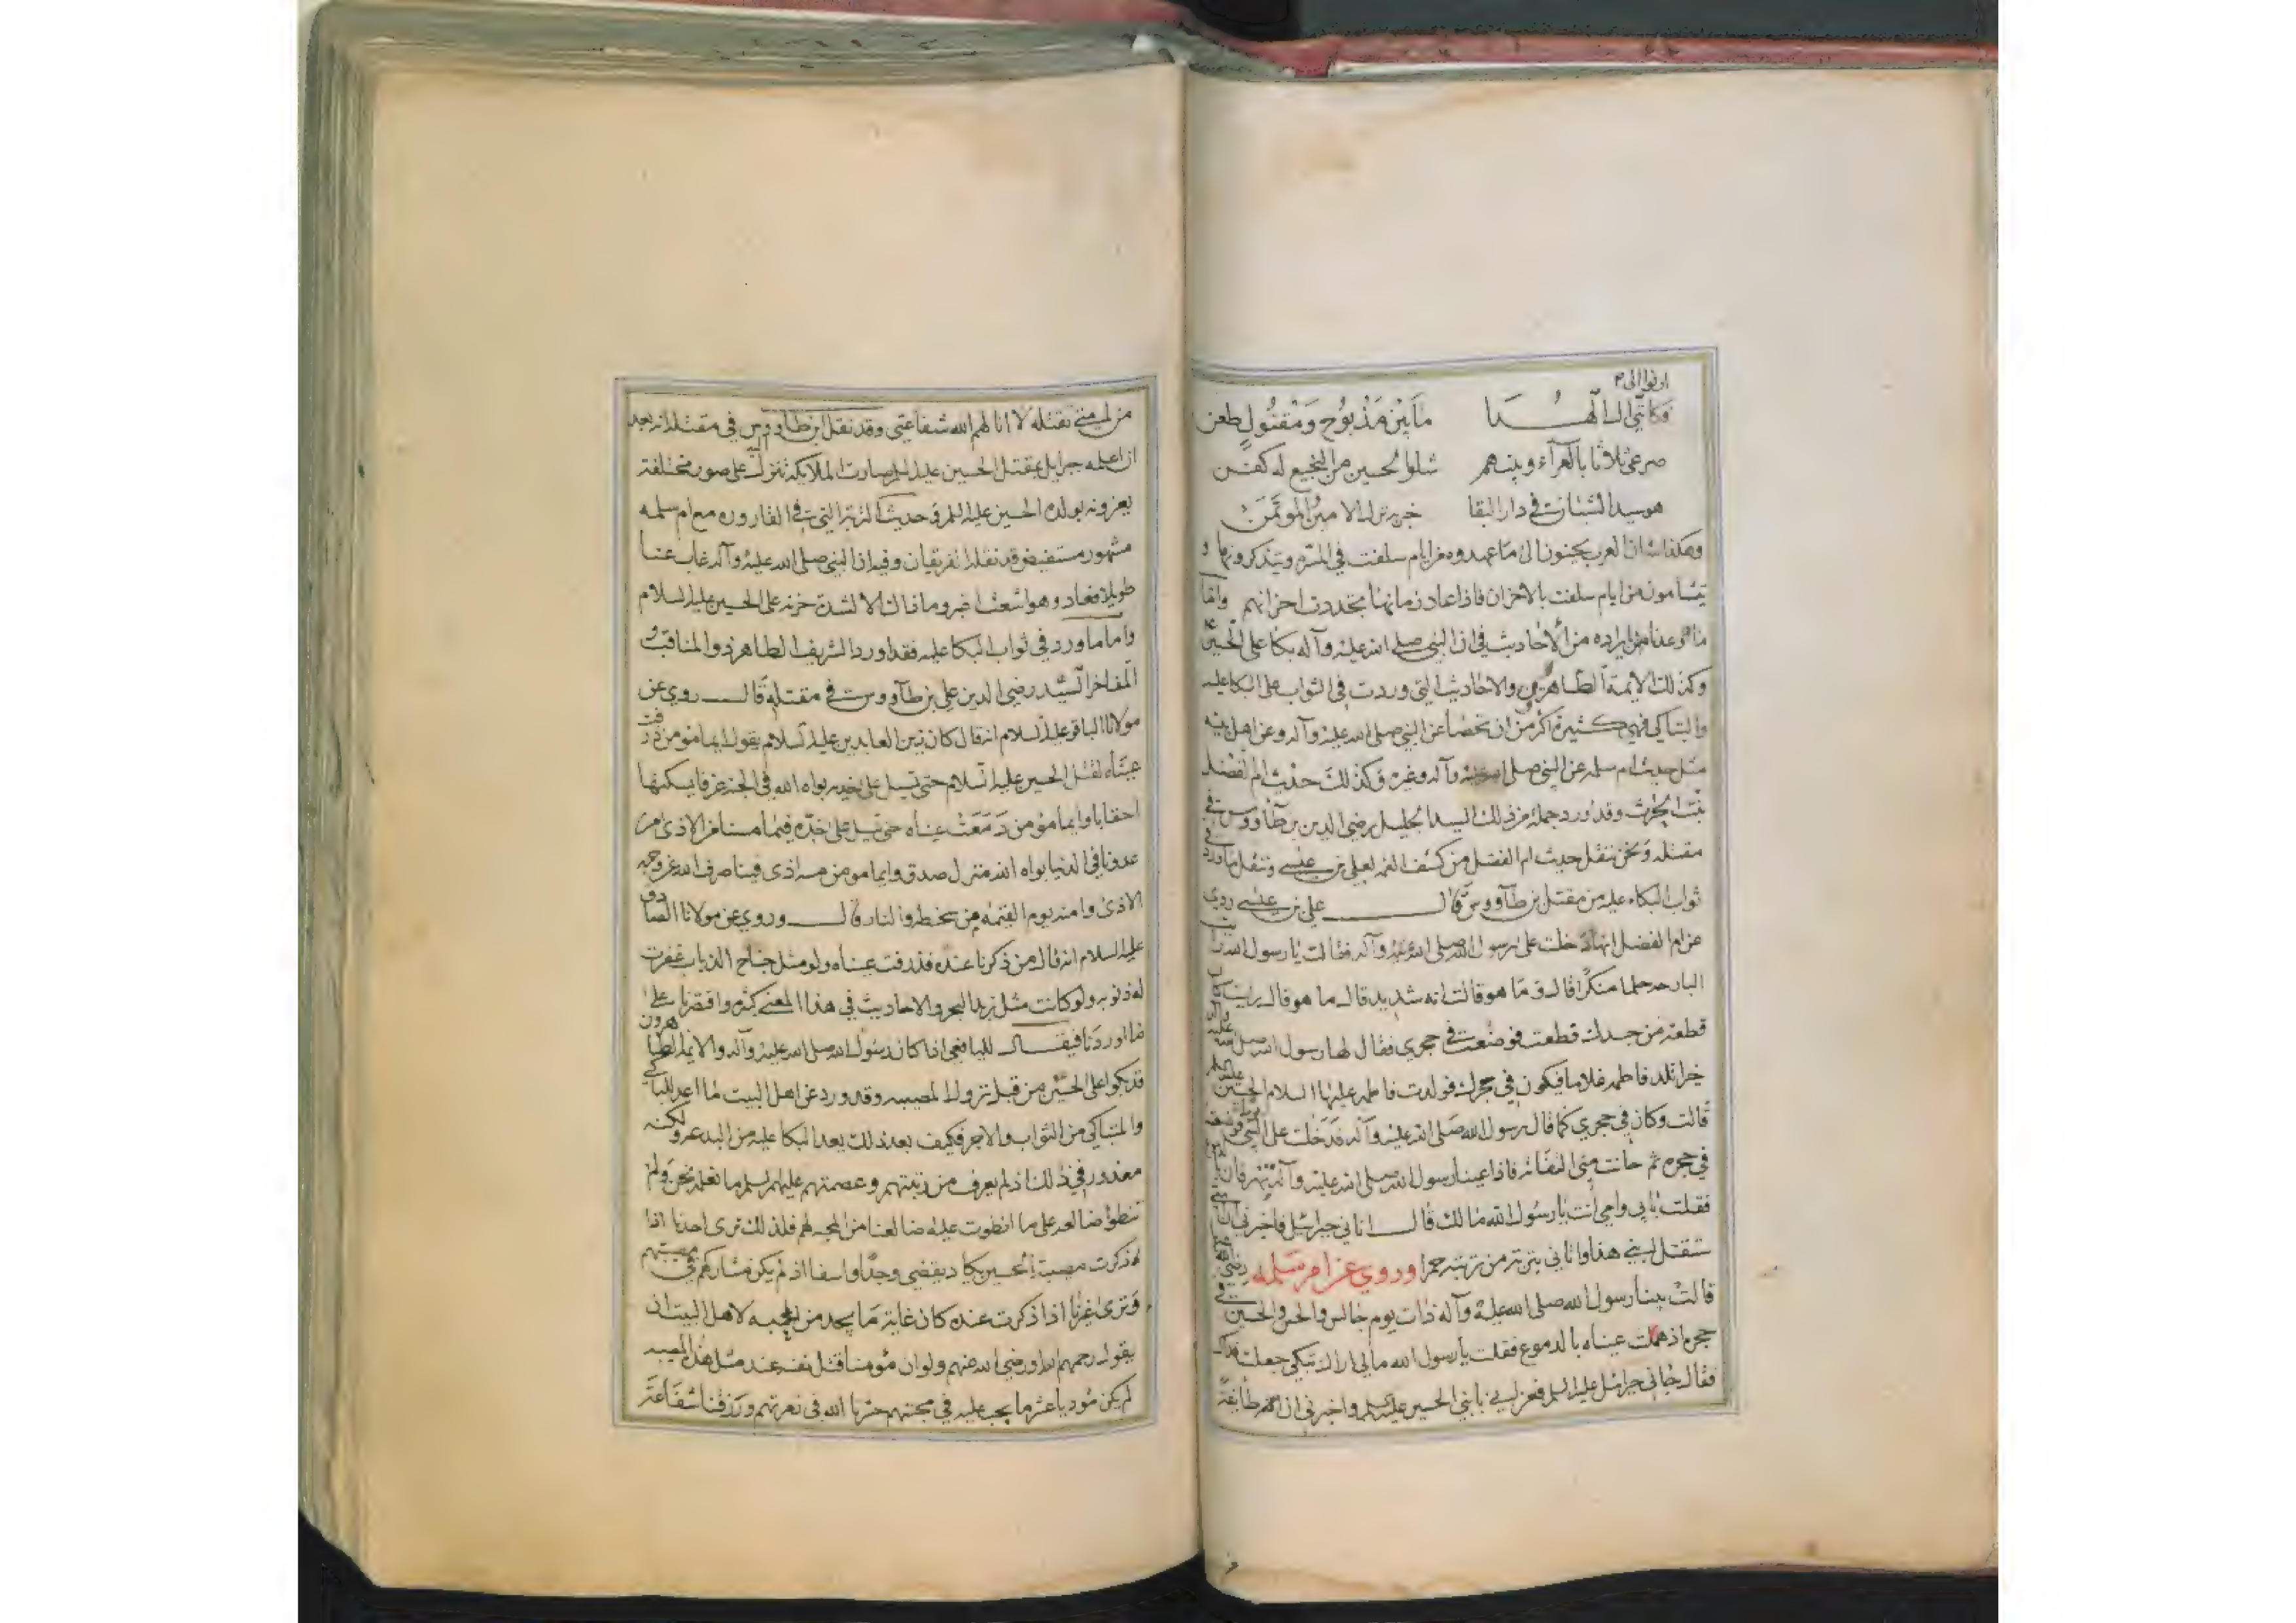 ارنوا الى
فكاني الى آل هدا ما بين مذبوح ومقتول طعن
صرعى ثلاثا بالعرآء وبينهم شلو الحسين من النجيع له كفن
هو سيد الشبان في دار البقا الامين المؤتمن
وهكذا شان العرب يحنون الى ما عهدوه من ايام سلفت في المسرة ويتذكرونها و
يتشامون من ايام سلفت بالاحزان فاذا عاد زمانها تجددت احزانهم واما
ما وعدنا من ايراده من الاحاديث في ان النبي صلى الله عليه وآله بكا على الحسين
وكذلك الائمة الطاهرين والاحاديث التي وردت في الثواب على البكا عليه
والتباكي فهي كثيرة اكثر من ان تحصا عن النبي صلى الله عليه وآله وعن اهل بيته
مثل حديث ام سلمه عن النبي صلى الله عليه وآله وغيره وكذلك حديث ام الفضل
بنت الحرث وقد اورد جملة من ذلك السيد الجليل رضي الدين بن طآووس في
مقتله ونحن ننقل حديث ام الفضل من كشف الغمه لعلي بن عيسى وننقل ما ورد في
ثواب البكاء عليه من مقتل بن طآووس قال علي بن عيسى روي
عن ام الفضل انها دخلت على رسول الله صلى الله عليه وآله فقالت يا رسول الله رايت
البارحه حلما منكرا قال وما هو قالت انه شديد قال ما هو قال رايت كان
قطعة من جسدك قطعت فوضعت في حجري فقال لها رسول الله صلى الله عليه وآله
خيرا تلد فاطمه غلاما فيكون في حجرك فولدت فاطمه عليها السلام الحسين عليه السلم
قالت وكان في حجري كما قال رسول الله صلى الله عليه وآله فدخلت على النبي فوضعته
في حجره ثم حانت مني التفاته فاذا عينا رسول الله صلى الله عليه وآله تهرقان
فقلت بابي وامي انت يا رسول الله ما لك قال اتاني جبرائيل فاخبرني ان امتي
ستقتل ابني هذا واتاني بتربة من تربته حمرا وروي عن ام سلمه رضي الله عنها
قالت بينا رسول الله صلى الله عليه وآله ذات يوم جالس والحسن والحسين في
حجره اذ هملت عيناه بالدموع فقلت يا رسول الله مالي اراك تبكي جعلت فداك
فقال جاني جبرائيل عليه السلم فعزاني بابني الحسين عليه السلم واخبرني ان طايفة
من امتي تقتله لا انالهم الله شفاعتي وقد نقل ابن طاووس في مقتله انه بعد
ان اعلمه جبرايل بمقتل الحسين عليه السلم صارت الملايكة تنزل اليه على صور مختلفة
يعزونه بولده الحسين عليه السلم وحديث التربة التي في القاروره مع ام سلمه
مشهور مستفيض قد نقله الفريقان وفيه ان النبي صلى الله عليه وآله غاب عنا
طويلا فعاد وهو اشعث اغبر وما ذاك الا لشدة حزنه على الحسين عليه السلام
واما ما ورد في ثواب البكا عليه فقد اورد الشريف الطاهر ذو المناقب و
المفاخر السيد رضي الدين علي بن طآووس في مقتله قال روي عن
مولانا الباقر عليه السلام انه قال كان زين العابدين عليه السلام يقول ايما مومن ذرفت
عيناه لقتل الحسين عليه السلام حتى تسيل على خديه بواه الله في الجنة غرفا يسكنها
احقابا وايما مومن دمعت عيناه حتى تسيل على خده فيما مسنا من الاذى من
عدونا في الدنيا بواه الله منزل صدق وايما مومن مسه اذى فينا صرف الله عن وجهه
الاذى وامنه يوم القيمه من سخطه والنار قال وروي عن مولانا الصادق
عليه السلام انه قال من ذكرنا عنده فذرفت عيناه ولو مثل جناح الذباب غفرت
له ذنوبه ولو كانت مثل زبد البحر والاحاديث في هذا المعنى كثيره واقتصرنا على
ما اوردنا فيقال للباغي اذا كان رسول الله صلى الله عليه وآله والايمة الطاهرون
قد بكوا على الحسين من قبل نزول المصيبه وقد ورد عن اهل البيت ما اعد للباكي
والمتباكي من الثواب والاجر فكيف بعد ذلك يعد البكا عليه من البدعه ولكنه
معذور في ذلك اذ لم يعرف من رتبتهم وعصمتهم عليهم السلم ما نعلمه نحن ولم
تنطو اضالعه على ما انطوت عليه اضالعنا من المحبه لهم فلذلك ترى احدنا اذا
ذكرت مصيبة الحسين يكاد يقضي وجدا واسفا اذ لم يكن مشاركهم في مصيبتهم
وترى غيرنا اذا ذكرت عنده كان غاية ما يجد من المحبه لاهل البيت ان
يقول رحمهم الله ورضي الله عنهم ولو ان مؤمنا قتل نفسه عند مثل هذه المصيبه
لم يكن مؤديا عشر ما يجب عليه في محبتهم حشرنا الله في زمرتهم ورزقنا شفاعتهم